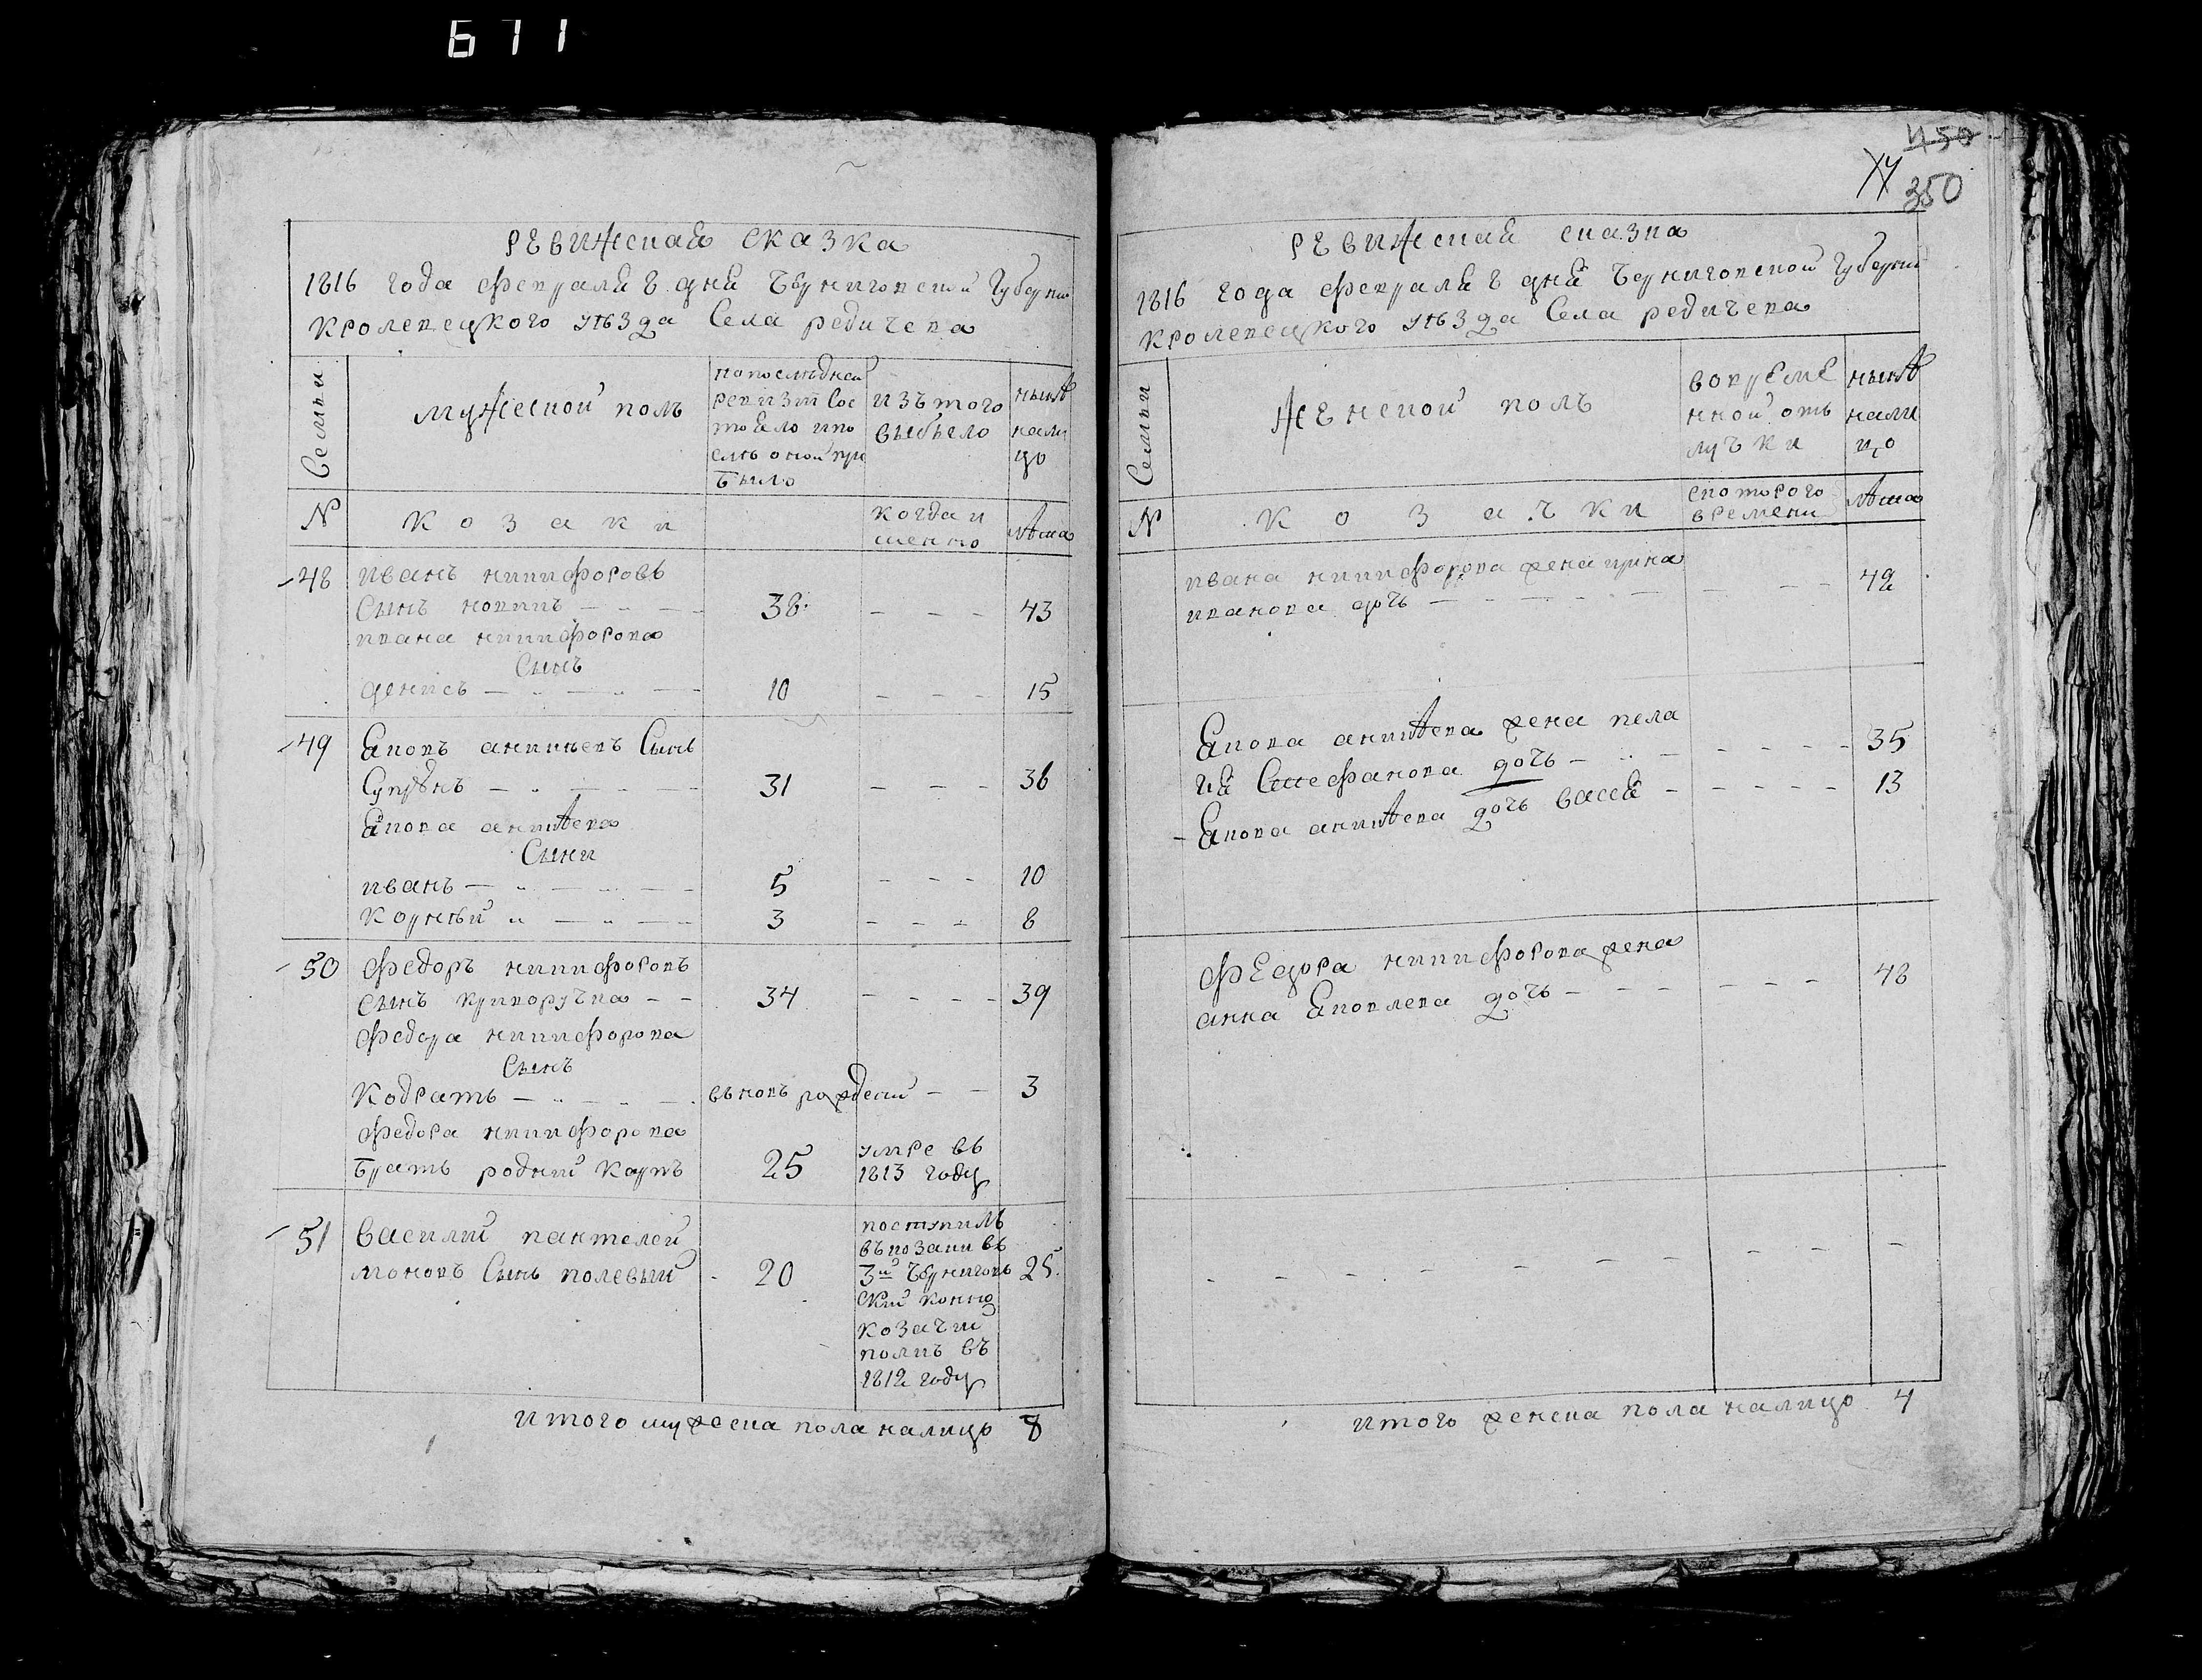 671
ревижская сказка
1816 года февраля 8 дня Черниговской Губернии
кролевецкого уезда Села редичева
Семьи
мужеской полъ
по последней
ревизiи сос
тояло и по
сле оной при
было
изъ того
выбыло
ныне
нали
цо
N
козаки
когда и
менно
лета
48 иванъ никифоровъ
Сынъ 38 - - - 43
ивана никифорова
Сынъ
денисъ 10 - - - 15
49 Яковъ аникиевъ Сынъ
Супрунъ 31 - - - 36
Якова аникеева
Сыни
иванъ 5 - - - 10
корней 3 - - - 8
50 федоръ никифоровъ
сынъ криворучка 34 - - - - 39
федора никифорова
Сынъ
кодратъ вновъ рожденiй - - 3
федора никифорова
братъ роднiй карпъ 25 умре въ
1813 году
51 василiй пантелей
моновъ Сынъ полевый 20 25
поступилъ
въ козаки въ
3й Черниговъ
скiй конно
козачiй
полкъ въ
1812 году
итого мужеска пола налицо 8
450
350
ревижская сказка
1816 года февраля 8 дня Черниговской Губернии
кролевецкого уезда Села редичева
Семьи
женской полъ
во време
нной отъ
лучки
ныне
нали
цо
N
козачки
с которого
времени
лета
ивана никифорова жена ирина
иванова дочь - - - 42
Якова аникеева жена пела
гия Стефанова дочь - - - - - 35
Якова аникеева дочь васса - - - - - 13
федора никифорова жена
анна Яковлева дочь - - - - - - 48
- - - - - - - - - - -
итого женска пола налицо 4